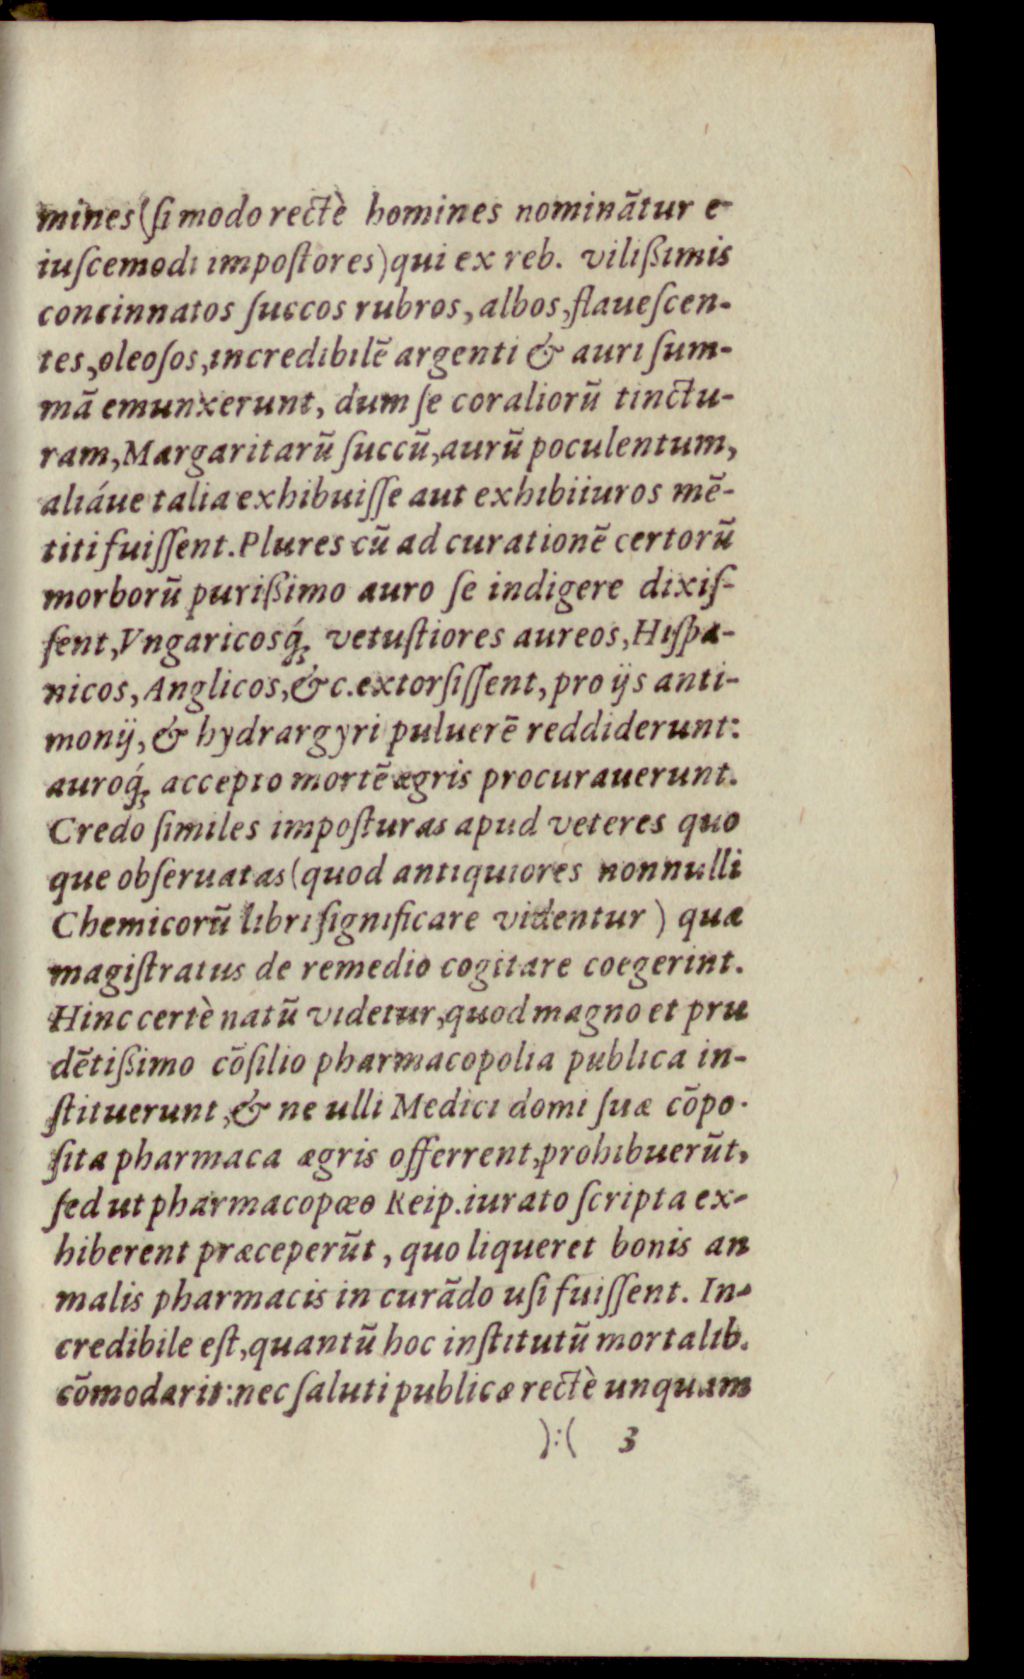 mines (ſi modo rectè homines nominãtur e-
iuſcemodi impoſtores) qui ex reb. vilißimis
concinnatos ſuccos rubros, albos, flaueſcen-
tes, oleoſos, incredibilẽ argenti & auri ſum-
mã emunxerunt, dum ſe coraliorũ tinctu-
ram, Margaritarũ ſuccũ, aurũ poculentum,
aliáue talia exhibuiſſe aut exhibiiuros mẽ-
titi fuiſſent. Plures cũ ad curationẽ certorũ
morborũ purißimo auro ſe indigere dixiſ-
ſent, Vngaricosq́; vetuſtiores aureos, Hiſpa-
nicos, Anglicos, &c. extorſiſſent, pro ijs anti-
monij, & hydrargyri puluerẽ reddiderunt:
auroq́; accepto mortẽ ægris procurauerunt.
Credo ſimiles impoſturas apud veteres quo
que obſeruatas (quod antiquiores nonnulli
Chemicorũ libri ſignificare videntur) quæ
magiſtratus de remedio cogitare coegerint.
Hinc certè natũ videtur, quod magno et pru
dẽtißimo cõſilio pharmacopolia publica in-
ſtituerunt, & ne ulli Medici domi ſuæ cõpo-
ſita pharmaca ægris offerrent, prohibuerũt,
ſed ut pharmacopœo Reip. iurato ſcripta ex-
hiberent præceperũt, quo liqueret bonis an
malis pharmacis in curãdo uſi fuiſſent. In-
credibile eſt, quantũ hoc inſtitutũ mortalib.
cõmodarit: nec ſaluti publicæ rectè unquam
):( 3